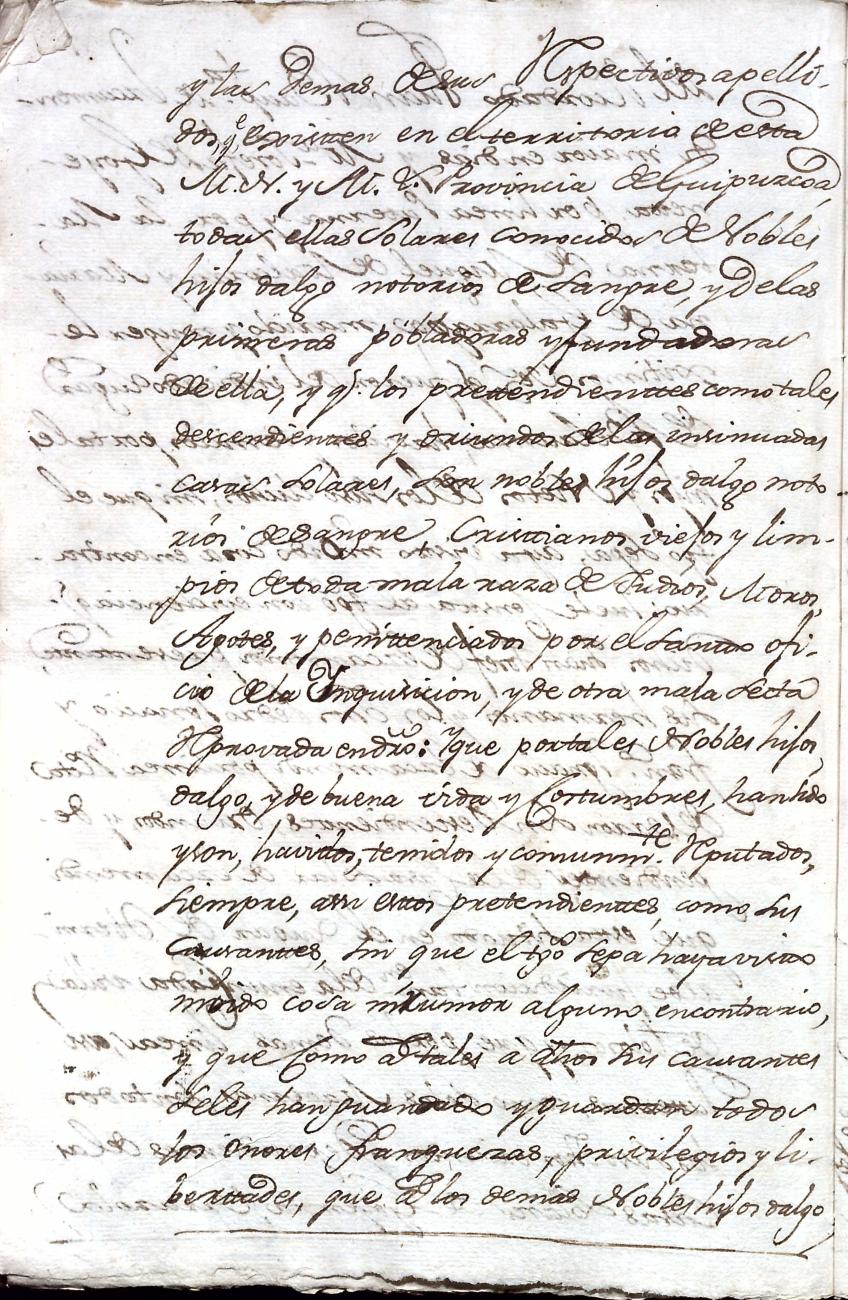 y las demas de sus Rspectivos apelli-
dos, q.e existten en el territtorio de esta
M. N. y M. L. Provincia de Guipurcoa,
todas ellas Solares conocidos de Nobles
hijos dalgo notorios de Sangre, y de las
primeras pobladoras y fundadoras
de ella, y q.e los prettendienttes como tales
descendienttes y oriundos de las insinuadas
casas Solares, Son nobles hijos dalgo noto
rios de Sangre, Cristtianos viejos y lim-
pios de toda mala raza de Judios, Moros,
Agotes, y penittenciados por el Santto ofi-
cio de la Ynquisicion, y de otra mala Secta
Rprovada en dro: Y que por tales Nobles hijos
dalgo, y de buena vida y Costumbres, han sido
y son, havidos, tenidos y comunm.te Rputados,
Siempre, assi esttos pretendienttes, como sus
Causanttes, sin que el tgo sepa haya vistto
ni oido cosa ni rumor alguno en contrario,
y que Como a tales a dhos sus causantes
Seles han guardado y guardan todos
los onores Franquezas, privilegios y li-
berttades, que a los demas Nobles hijos dalgo